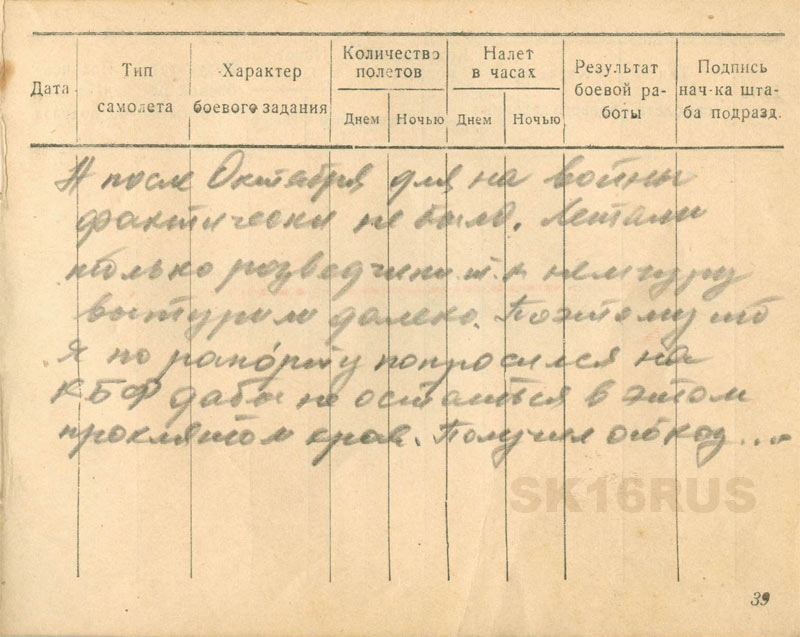 Дата
Тип самолета
Характер боевого задания
Количество полетов
Днем
Ночью
Налет в часах
Днем
Ночью
Результат боевой работы
Подпись нач-ка штаба подразд.
после Октября для на войны
фактически не было. Летали
только разведчики т.к немчуру
вытурили далеко. Поэтому то
я по рапорту попросился на
КБФ дабы не остаться в этом
проклятом крае. Получил отказ...
SK16RUS
39